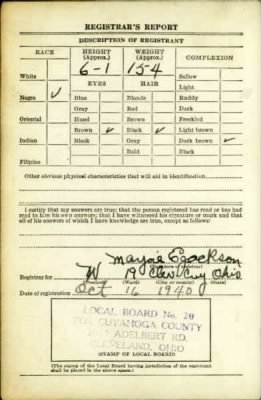 REGISTRAR'S REPORT
DESCRIPTION OF REGISTRANT
RACE HEIGHT (Approx.) WEIGHT (Approx.) COMPLEXION
6-1 154
White Sallow
EYES HAIR Light
Negro ✓ Blue Blonde Ruddy
Gray Red Dark
Oriental Hazel Brown Freckled
Brown ✓ Black ✓ Light brown
Indian Black Gray Dark brown ✓
Bald Black
Filipino
Other obvious physical characteristics that will aid in identification
I certify that my answers are true; that the person registered has read or has had
read to him his own answers; that I have witnessed his signature or mark and that
all of his answers of which I have knowledge are true, except as follows:
Jackson
Registrar for W 19 Clev Cuy Ohio
(Precinct) (Ward) (City or county) (State)
Date of registration Oct 16 1940
LOCAL BOARD No. 20
FOR CUYAHOGA COUNTY
ADELBERT RD.
CLEVELAND, OHIO
(STAMP OF LOCAL BOARD)
(The stamp of the Local Board having jurisdiction of the registrant
shall be placed in the above space.)